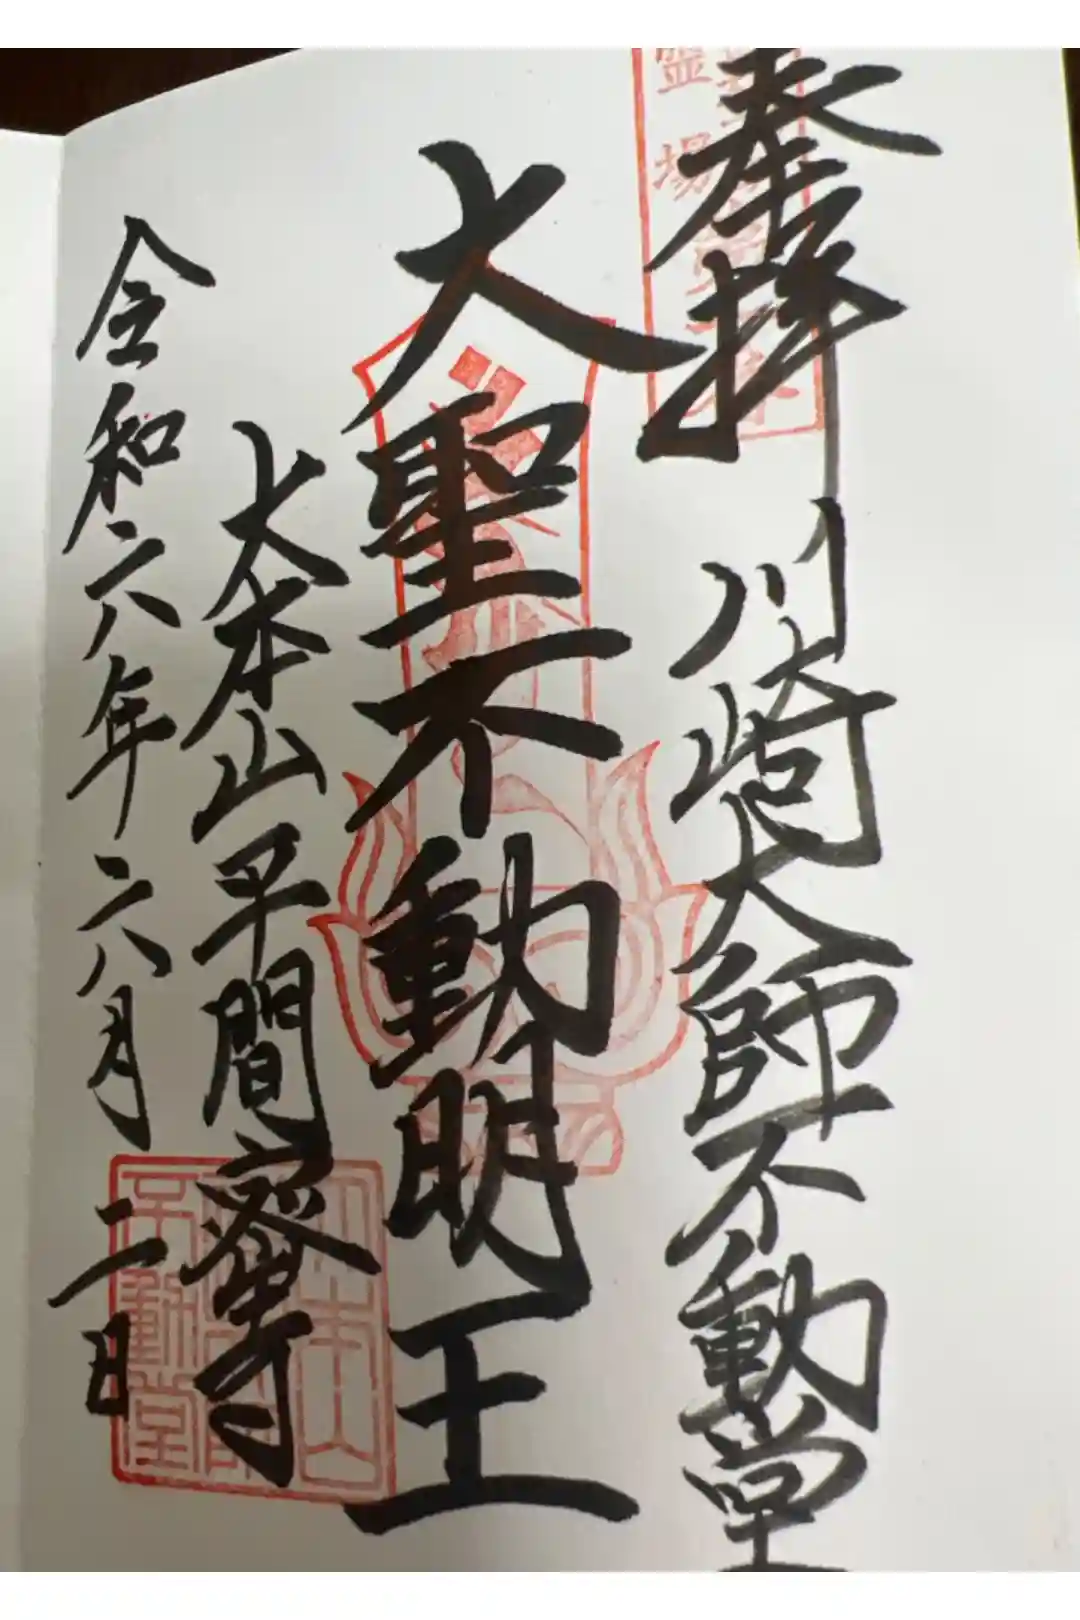 奉拝
川崎大師不動堂
大聖不動明王
大本山平間寺
令和六年六月二日
霊場
大本山
不動堂